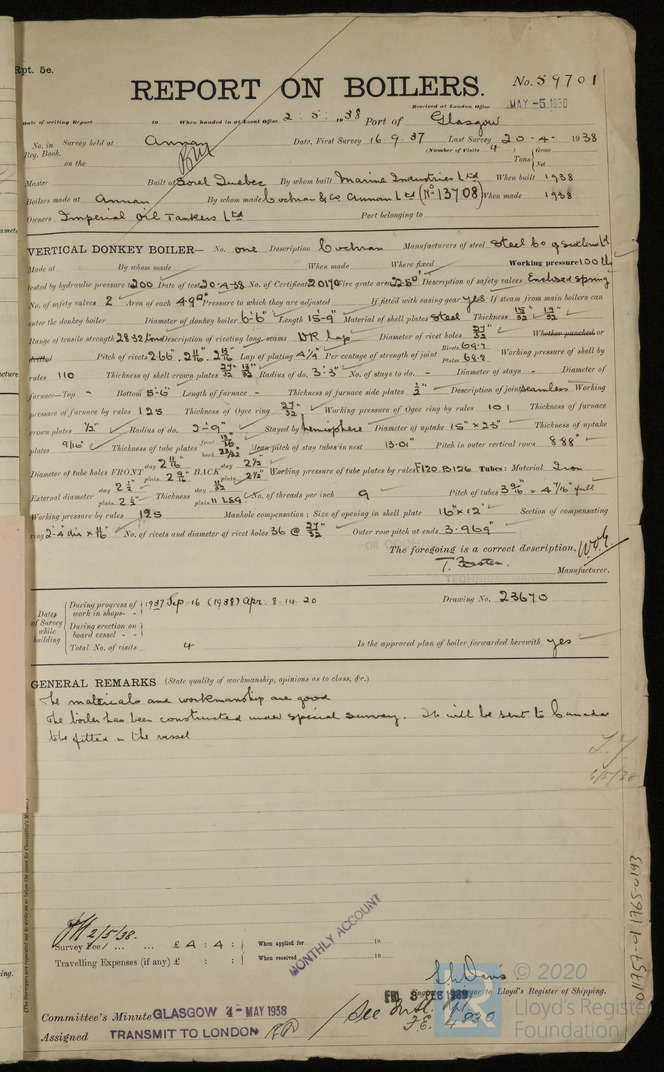 Rpt. 5e.
REPORT ON BOILERS.
No. 59701
Received at London Office MAY -5 1938
Date of writing Report 19 When handed in at Local Office 2 : 5 : 1938 Port of Glasgow
No. in Reg. Book. Survey held at Annan Date, First Survey 16.9.37 Last Survey 20-4- 1938
on the (Number of Visits 4) Tons Gross Net
Master Built at Sorel Quebec By whom built Marine Industries Ltd When built 1938
Boilers made at Annan By whom made Cochran & Co Annan Ltd (No 13708) When made 1938
Owners Imperial Oil Tankers Ltd Port belonging to
VERTICAL DONKEY BOILER— No. one Description Cochran Manufacturers of steel Steel Co of Scotland Ltd
Made at By whom made When made Where fixed Working pressure 100 lb
tested by hydraulic pressure to 200 Date of test 20-4-38 No. of Certificate 20170 Fire grate area 22.50" Description of safety valves Enclosed spring
No. of safety valves 2 Area of each 4.9" Pressure to which they are adjusted If fitted with easing gear yes If steam from main boilers can
enter the donkey boiler Diameter of donkey boiler 6'-6" Length 15'-9" Material of shell plates Steel Thickness 15/32 19/32
Range of tensile strength 28-32 tons Description of riveting long. seams DR Lap Diameter of rivet holes 27/32" Whether punched or
drilled Pitch of rivets 2.66", Lap of plating 4 1/4" Per centage of strength of joint Rivets 69.7 Plates 68.2 Working pressure of shell by
rules 110 Thickness of shell crown plates Radius of do. 3'-3" No. of stays to do. - Diameter of stays - Diameter of
furnace—Top - Bottom 5'-6" Length of furnace - Thickness of furnace side plates 1/2" Description of joint seamless Working
pressure of furnace by rules 125 Thickness of Ogee ring 27/32" Working pressure of Ogee ring by rules 101 Thickness of furnace
crown plates 1/2" Radius of do. 2'-9" Stayed by hemisphere Diameter of uptake 15" x 23" Thickness of uptake
plates 9/16" Thickness of tube plates front back 23/32 Mean pitch of stay tubes in nest 13.01" Pitch in outer vertical rows 8.88"
Diameter of tube holes FRONT stay plain BACK stay 2 1/2" plain 2 1/2" Working pressure of tube plates by rules F120.B126 Tubes: Material Iron
External diameter stay 2 1/2" plain 2 1/2" Thickness stay plain 11 LSG No. of threads per inch 9 Pitch of tubes 3 9/16" x 4 7/16" full
Working pressure by rules 125 Manhole compensation: Size of opening in shell plate 16" x 12" Section of compensating
ring 2'-4 dia x 11/16" No. of rivets and diameter of rivet holes 36 @ 27/32" Outer row pitch at ends 3.969"
The foregoing is a correct description,
T. Foster. Manufacturer.
Dates of Survey while building
During progress of work in shops - - 1937 Sep. 16 (1938) Apr. 8. 14. 20 Drawing No. 23670
During erection on board vessel - -
Total No. of visits 4 Is the approved plan of boiler forwarded herewith yes
GENERAL REMARKS (State quality of workmanship, opinions as to class, &c.)
The materials and workmanship are good
The boiler has been constructed under special survey. It will be sent to Canada
to be fitted in the vessel
6/5/38
2/5/38.
Survey Fee ... ... £ 4 : 4 : When applied for 19
Travelling Expenses (if any) £ : : When received 19
MONTHLY ACCOUNT
Engineer Surveyor to Lloyd's Register of Shipping.
FRI. 3 FEB 1939
Committee's Minute GLASGOW 4- MAY 1938
Assigned TRANSMIT TO LONDON
F.E. 
011757-011765-0193
© 2020
Lloyd's Register
Foundation